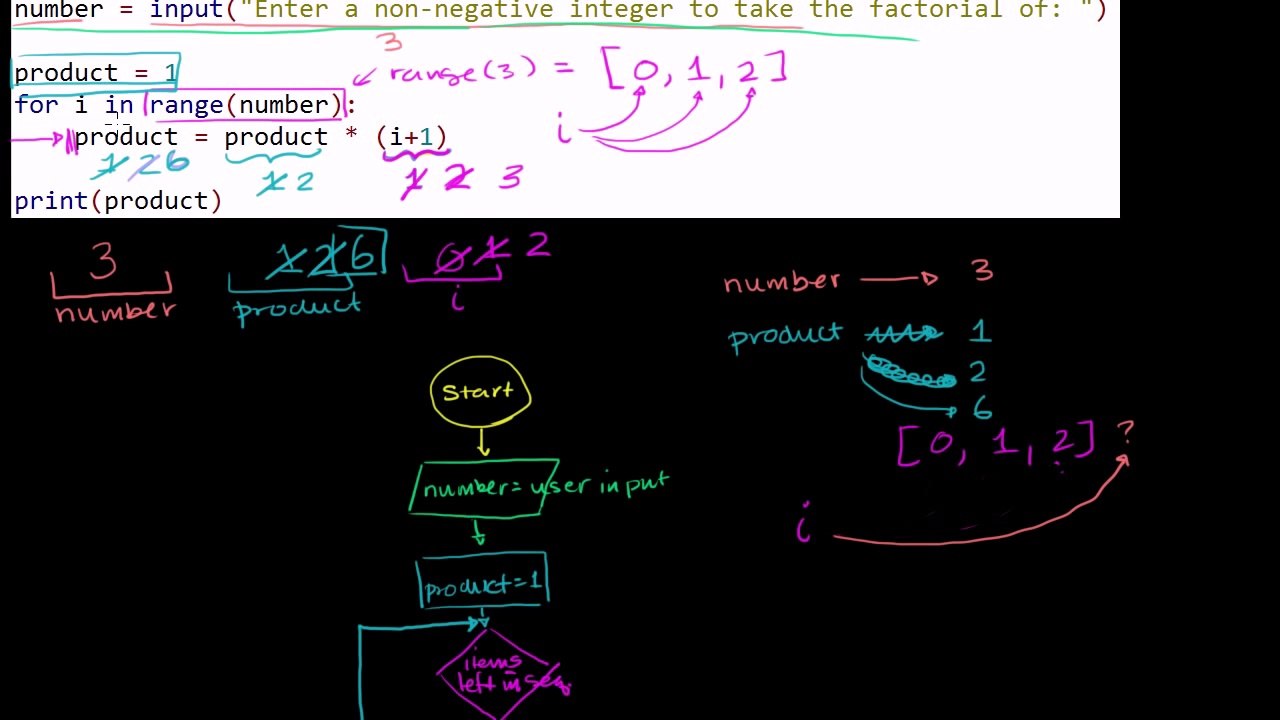 number = input("Enter a non-negative integer to take the factorial of: ")
3
product = 1
range(3) = [0, 1, 2]
for i in range(number):
i
product = product * (i+1)
1 2 6
1 2
1 2 3
print(product)
3
number
1 2 6
product
0 1 2
i
number 3
product 1
2
6
[0, 1, 2] ?
i
Start
number = user input
product = 1
items
left in seq.